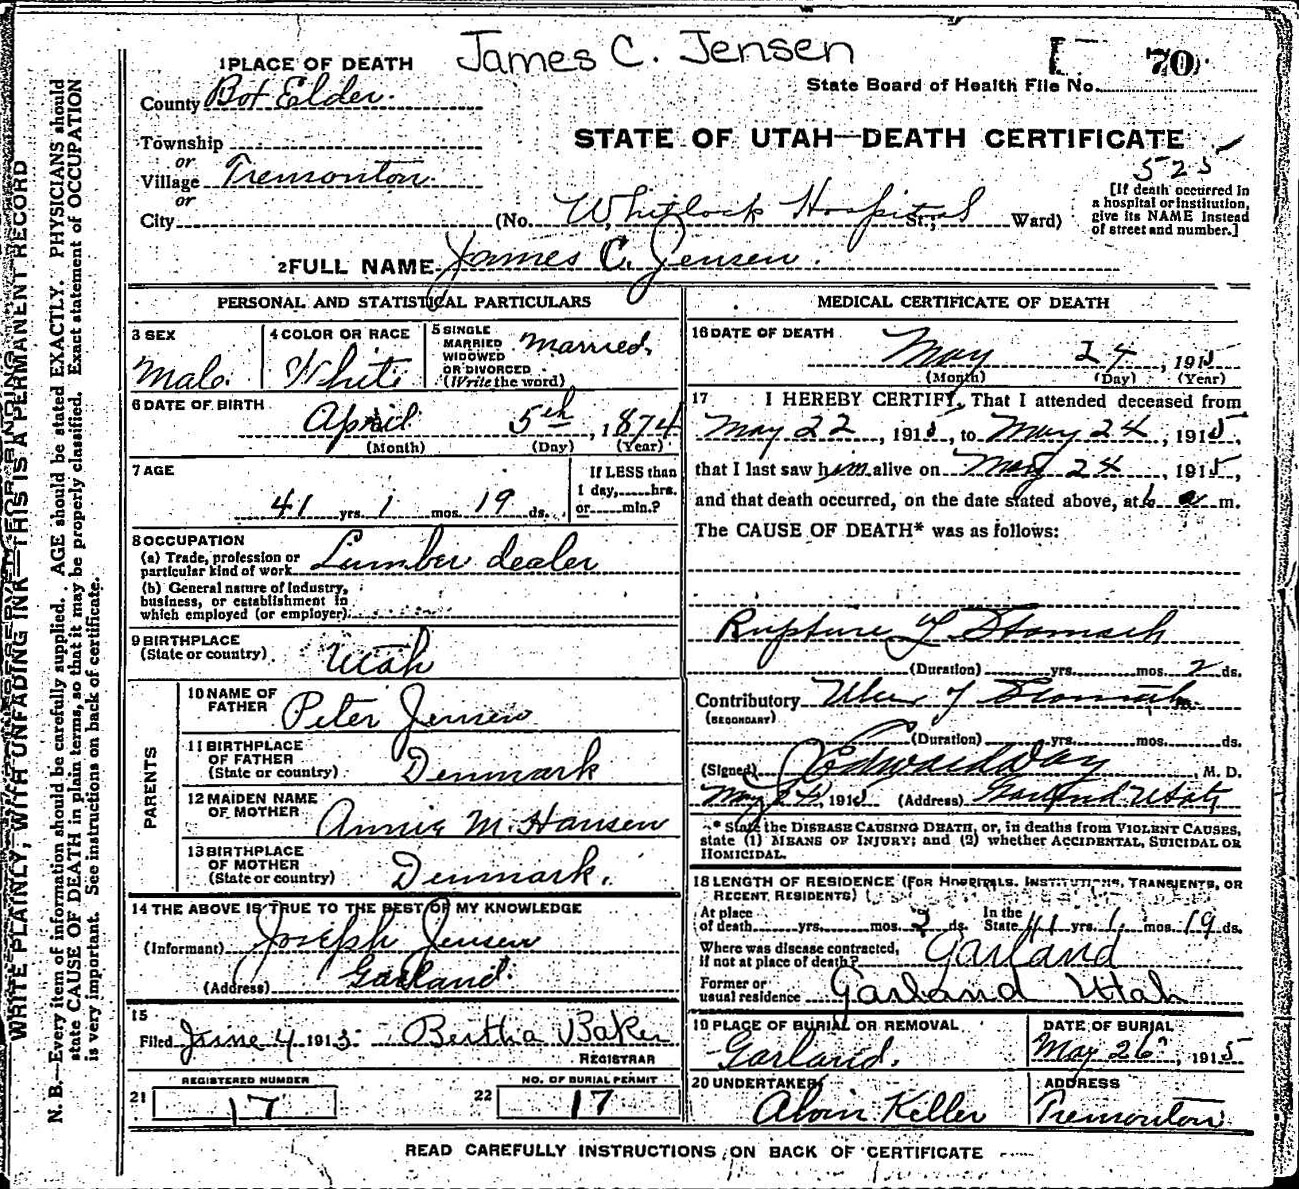 James C. Jensen
70
State Board of Health File No.
1 PLACE OF DEATH
County Box Elder.
STATE OF UTAH—DEATH CERTIFICATE
525
Township
or
Village Tremonton.
or
City (No. Whitlock Hospital St.; Ward)
[If death occurred in
a hospital or institution,
give its NAME instead
of street and number.]
2 FULL NAME James C. Jensen.
PERSONAL AND STATISTICAL PARTICULARS
3 SEX
Male.
4 COLOR OR RACE
White
5 SINGLE
MARRIED
WIDOWED
OR DIVORCED
(Write the word)
Married.
6 DATE OF BIRTH
April 5th, 1874
(Month) (Day) (Year)
7 AGE
41 yrs. 1 mos. 19 ds.
If LESS than
1 day,......hrs.
or......min.?
8 OCCUPATION
(a) Trade, profession or
particular kind of work Lumber dealer
(b) General nature of industry,
business, or establishment in
which employed (or employer)
9 BIRTHPLACE
(State or country) Utah
PARENTS
10 NAME OF
FATHER Peter Jensen
11 BIRTHPLACE
OF FATHER
(State or country) Denmark
12 MAIDEN NAME
OF MOTHER Annie M. Hansen
13 BIRTHPLACE
OF MOTHER
(State or country) Denmark.
14 THE ABOVE IS TRUE TO THE BEST OF MY KNOWLEDGE
(Informant) Joseph Jensen
(Address) Garland.
15
Filed June 4 1913. Bertha Baker
REGISTRAR
21 REGISTERED NUMBER
17
22 NO. OF BURIAL PERMIT
17
MEDICAL CERTIFICATE OF DEATH
16 DATE OF DEATH
May 24, 1915
(Month) (Day) (Year)
17 I HEREBY CERTIFY, That I attended deceased from
May 22, 1915, to May 24, 1915,
that I last saw him alive on May 24, 1915,
and that death occurred, on the date stated above, at 6 a m.
The CAUSE OF DEATH* was as follows:
Rupture of Stomach
(Duration) yrs. mos. 2 ds.
Contributory Ulcer of Stomach
(SECONDARY)
(Duration) yrs. mos. ds.
(Signed) Edward Day, M. D.
May 24, 1915 (Address) Garland Utah
* State the DISEASE CAUSING DEATH, or, in deaths from VIOLENT CAUSES,
state (1) MEANS OF INJURY; and (2) whether ACCIDENTAL, SUICIDAL OR
HOMICIDAL.
18 LENGTH OF RESIDENCE (FOR HOSPITALS, INSTITUTIONS, TRANSIENTS, OR
RECENT RESIDENTS)
At place
of death yrs. mos. 2 ds. In the
State 41 yrs. 1 mos. 19 ds.
Where was disease contracted,
if not at place of death? Garland
Former or
usual residence Garland Utah
19 PLACE OF BURIAL OR REMOVAL
Garland.
DATE OF BURIAL
May 26, 1915
20 UNDERTAKER
Alvin Keller
ADDRESS
Tremonton
READ CAREFULLY INSTRUCTIONS ON BACK OF CERTIFICATE
WRITE PLAINLY, WITH UNFADING INK—THIS IS A PERMANENT RECORD
N. B.—Every item of information should be carefully supplied. AGE should be stated EXACTLY. PHYSICIANS should
state CAUSE OF DEATH in plain terms, so that it may be properly classified. Exact statement of OCCUPATION
is very important. See instructions on back of certificate.